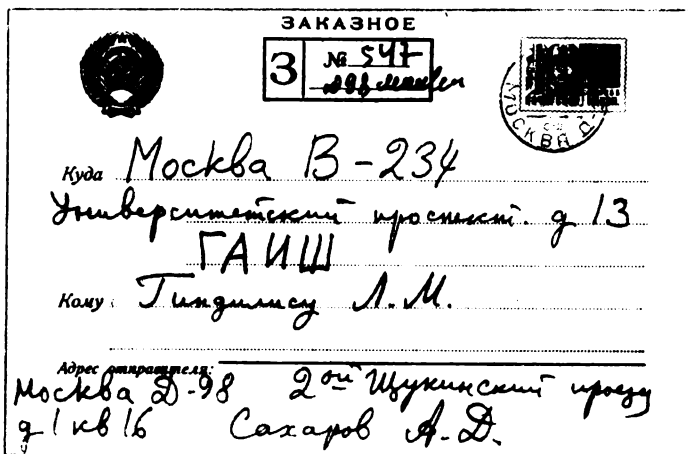 ЗАКАЗНОЕ
З № 547
Д98 Москвы
МОСКВА Д-
Куда Москва В-234
Университетский проспект. д 13
ГАИШ
Кому: Гиндилису Л.М.
Адрес отправителя:
Москва Д-98 2ой Щукинский проезд
д 1 кв 16 Сахаров А.Д.